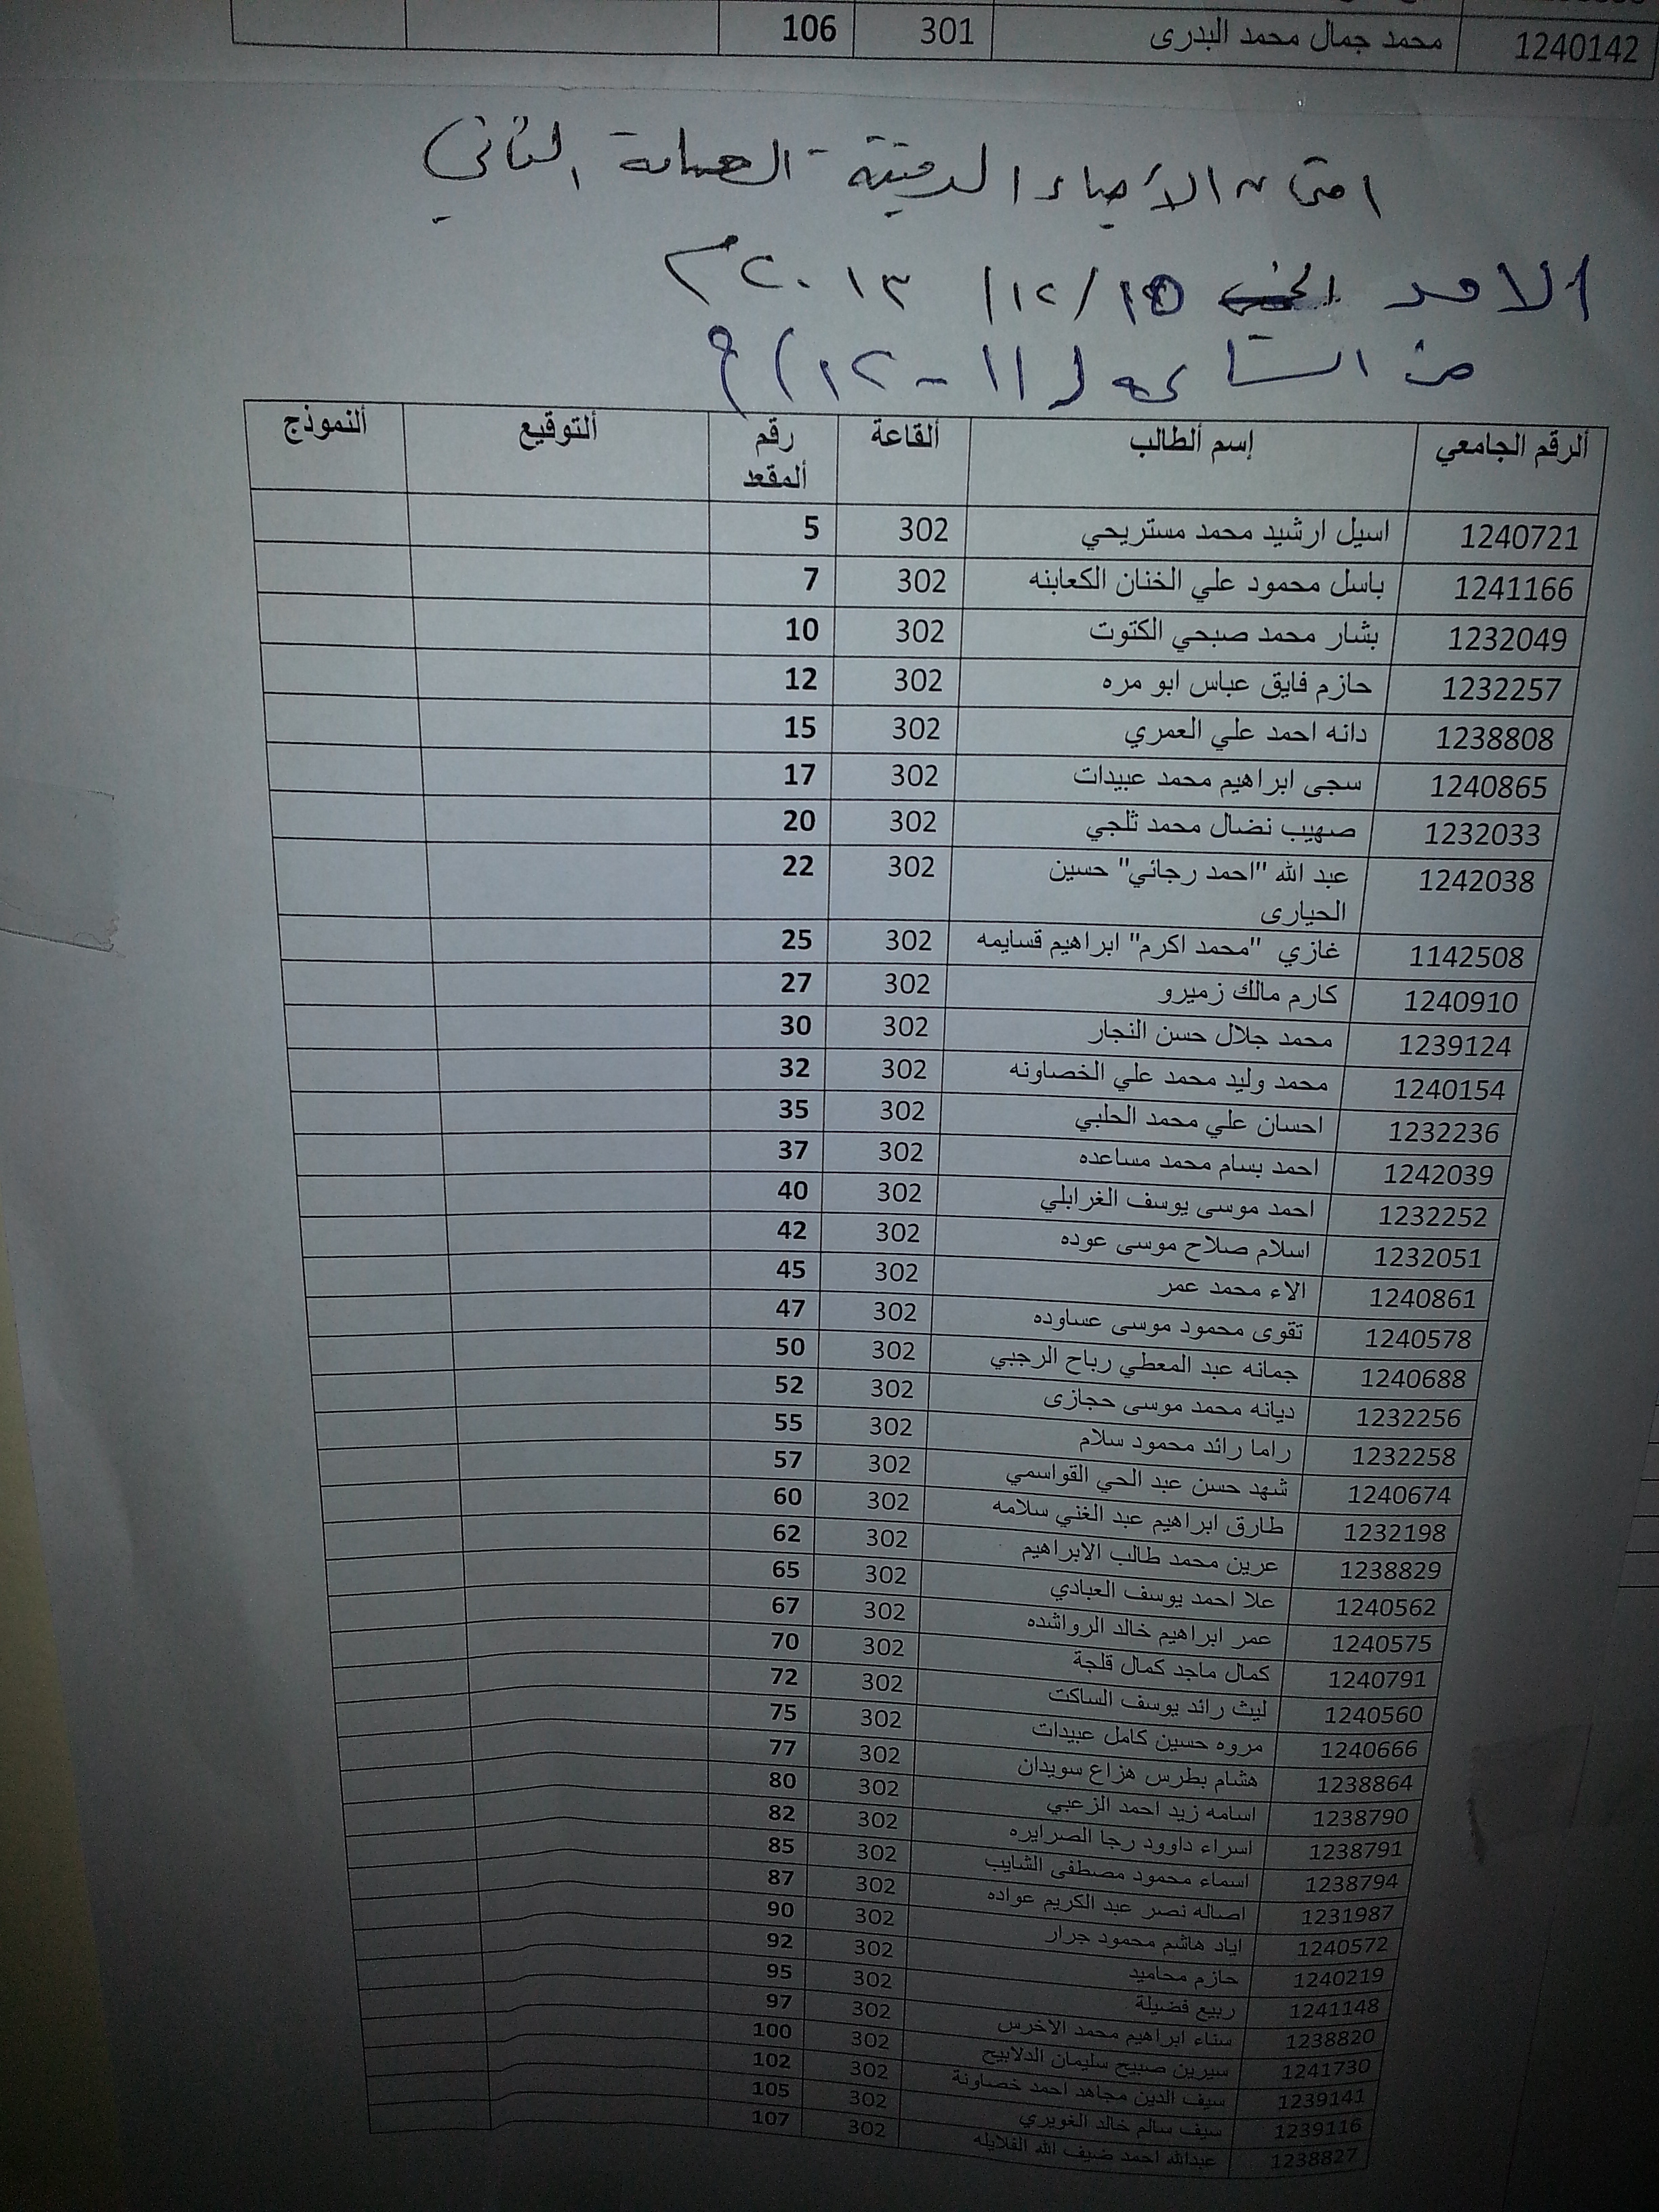 1240142 محمد جمال محمد البدرى 301 106
امتحان الأحياء الدقيقة العملي الثاني
الاحد 15/12/2013م
من الساعه (11-12)
ألرقم الجامعي إسم ألطالب ألقاعة رقم ألمقعد ألتوقيع ألنموذج
1240721 اسيل ارشيد محمد مستريحي 302 5
1241166 باسل محمود علي الخنان الكعابنه 302 7
1232049 بشار محمد صبحي الكتوت 302 10
1232257 حازم فايق عباس ابو مره 302 12
1238808 دانه احمد علي العمري 302 15
1240865 سجى ابراهيم محمد عبيدات 302 17
1232033 صهيب نضال محمد ثلجي 302 20
1242038 عبد الله "احمد رجائي" حسين الحيارى 302 22
1142508 غازي "محمد اكرم" ابراهيم قسايمه 302 25
1240910 كارم مالك زميرو 302 27
1239124 محمد جلال حسن النجار 302 30
1240154 محمد وليد محمد علي الخصاونه 302 32
1232236 احسان علي محمد الحلبي 302 35
1242039 احمد بسام محمد مساعده 302 37
1232252 احمد موسى يوسف الغرابلي 302 40
1232051 اسلام صلاح موسى عوده 302 42
1240861 الاء محمد عمر 302 45
1240578 تقوى محمود موسى عساوده 302 47
1240688 جمانه عبد المعطي رباح الرجبي 302 50
1232256 ديانه محمد موسى حجازى 302 52
1232258 راما رائد محمود سلام 302 55
1240674 شهد حسن عبد الحي القواسمي 302 57
1232198 طارق ابراهيم عبد الغني سلامه 302 60
1238829 عرين محمد طالب الابراهيم 302 62
1240562 علا احمد يوسف العبادي 302 65
1240575 عمر ابراهيم خالد الرواشده 302 67
1240791 كمال ماجد كمال قلجة 302 70
1240560 ليث رائد يوسف الساكت 302 72
1240666 مروه حسين كامل عبيدات 302 75
1238864 هشام بطرس هزاع سويدان 302 77
1238790 اسامه زيد احمد الزعبي 302 80
1238791 اسراء داوود رجا الصرايره 302 82
1238794 اسماء محمود مصطفى الشايب 302 85
1231987 اصاله نصر عبد الكريم عواده 302 87
1240572 اياد هاشم محمود جرار 302 90
1240219 حازم محاميد 302 92
1241148 ربيع فضيلة 302 95
1238820 سناء ابراهيم محمد الاخرس 302 97
1241730 سيرين صبيح سليمان الدلابيح 302 100
1239141 سيف الدين مجاهد احمد خصاونة 302 102
1239116 سيف سالم خالد الغويري 302 105
1238827 عبدالله احمد ضيف الله الفلايله 302 107